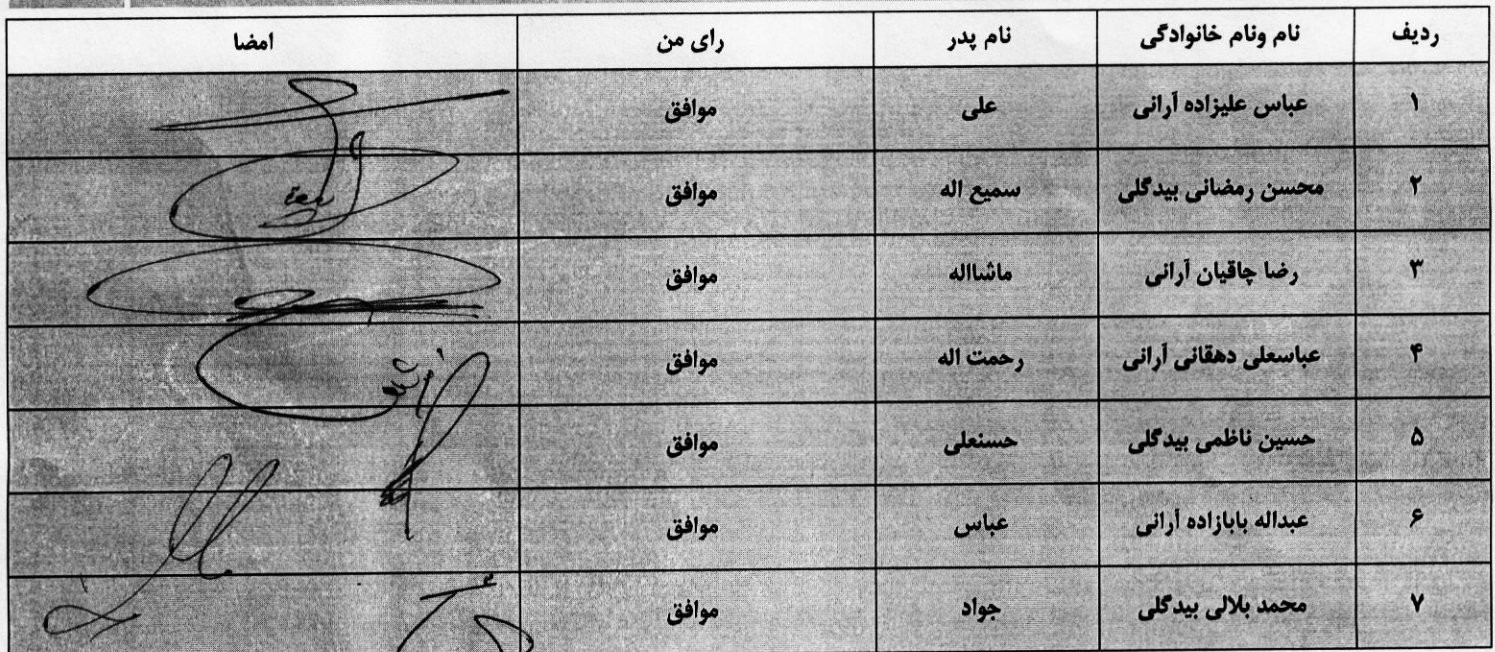 ردیف نام ونام خانوادگی نام پدر رای من امضا
۱ عباس علیزاده آرانی علی موافق
۲ محسن رمضانی بیدگلی سمیع اله موافق
۳ رضا چاقیان آرانی ماشااله موافق
۴ عباسعلی دهقانی آرانی رحمت اله موافق
۵ حسین ناظمی بیدگلی حسنعلی موافق
۶ عبداله بابازاده آرانی عباس موافق
۷ محمد بلالی بیدگلی جواد موافق